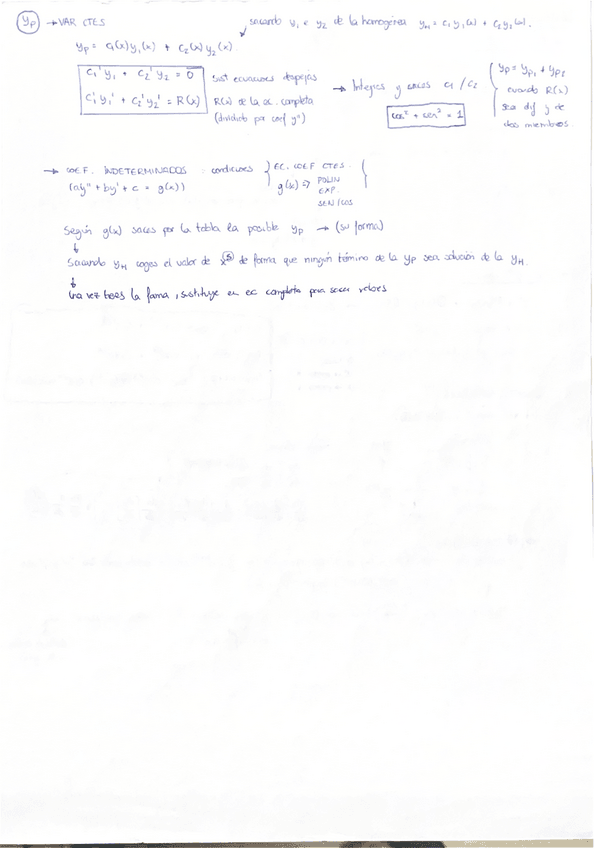 yp → VAR CTES
sacando y1 e y2 de la homogénea yH = c1 y1(x) + c2 y2(x).
yp = c1(x) y1(x) + c2(x) y2(x)
c1' y1 + c2' y2 = 0
c1' y1' + c2' y2' = R(x)
Sist ecuaciones despejas
R(x) de la ec. completa
(dividido por coef y'')
→ Integras y sacas c1 / c2
cos² + sen² = 1
yp = yp1 + yp2
cuando R(x)
sea dif y de
dos miembros.
→ COEF. INDETERMINADOS : condiciones
(ay'' + by' + c = g(x))
EC. COEF CTES.
g(x) ⇒ POLIN
EXP.
SEN/COS
Según g(x) sacas por la tabla la posible yp → (su forma)
↓
Sacando yH coges el valor de x^s de forma que ningún término de la yp sea solución de la yH.
↓
Una vez tienes la forma, sustituye en ec completa para sacar valores